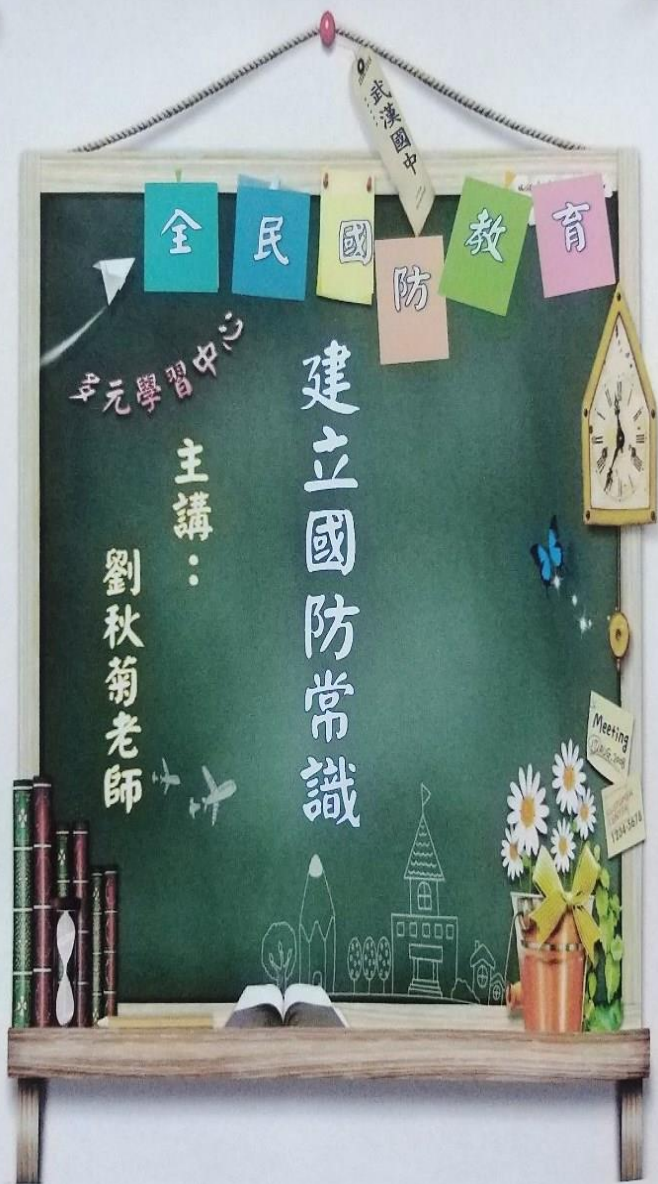 武漢國中
全民國防教育
多元學習中心
建立國防常識
主講：
劉秋菊老師
Meeting
1234-5678